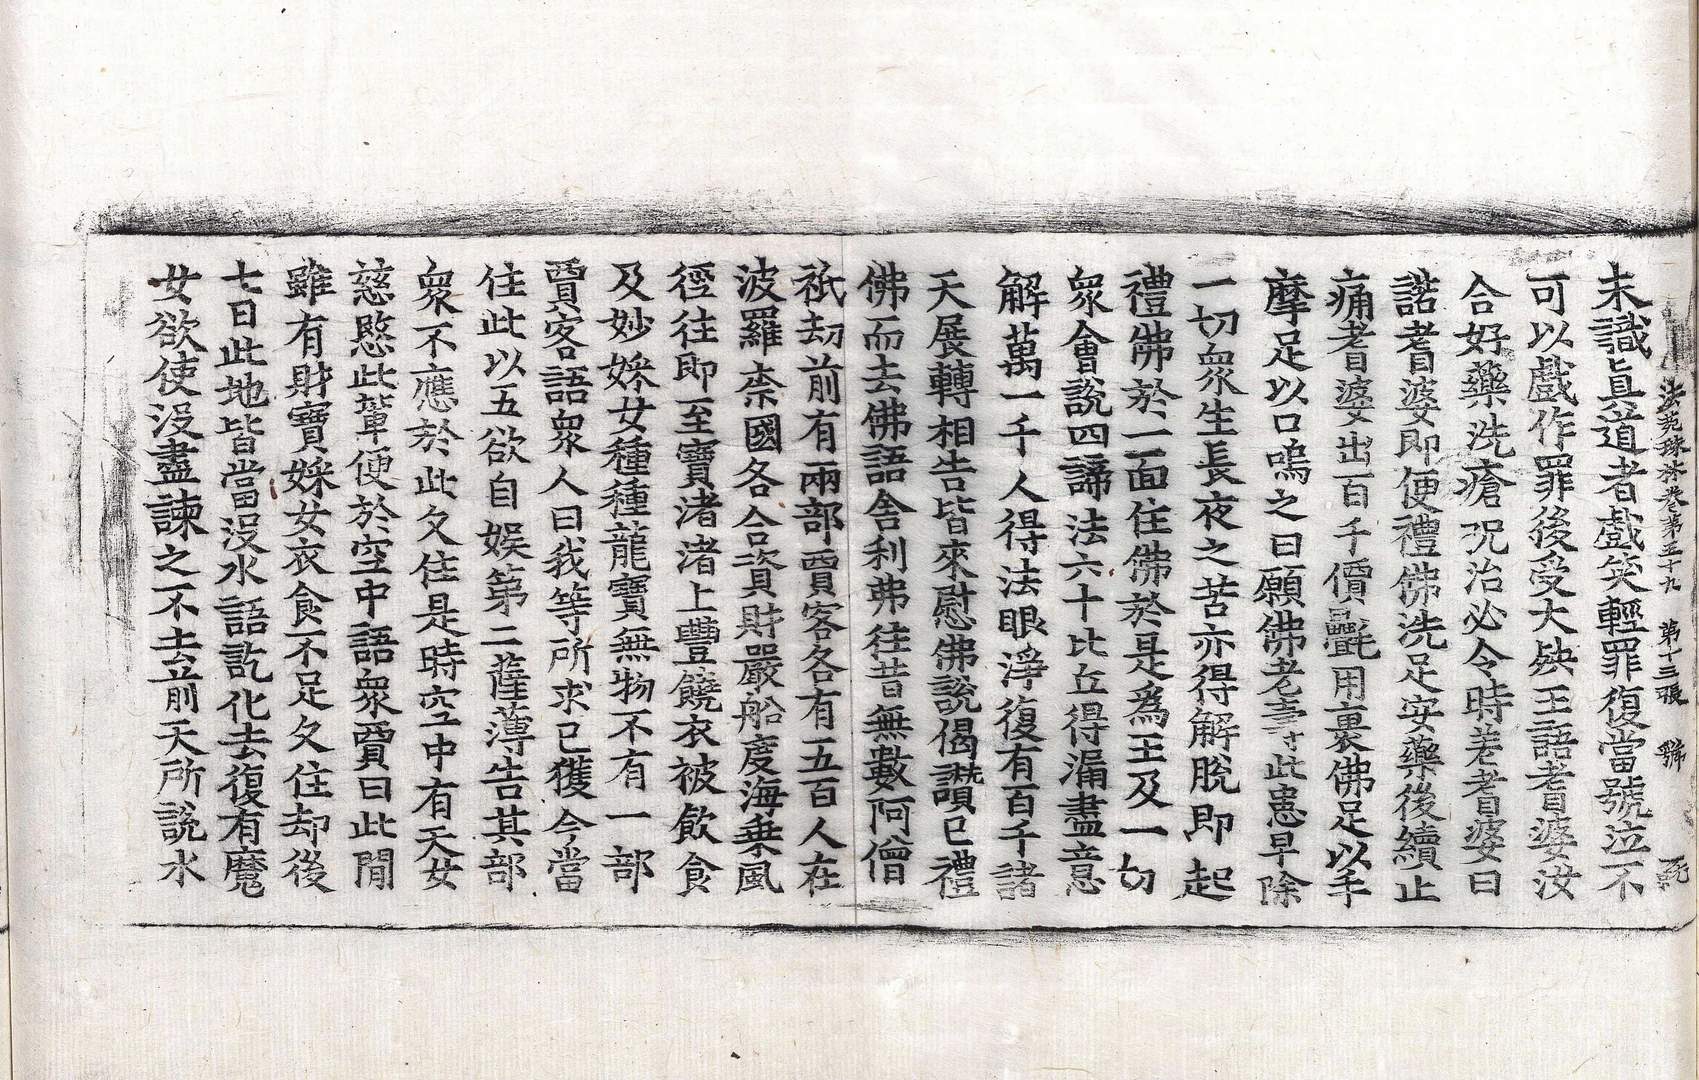 法苑珠林卷第五十九 第十三張 號
未識眞道者戲笑輕罪復當號泣不
可以戲作罪後受大殃王語耆婆汝
合好藥洗瘡呪治必令時差耆婆曰
諾耆婆即便禮佛洗足安藥後續止
痛耆婆出百千價㲲用裹佛足以手
摩足以口嗚之曰願佛老壽此患早除
一切衆生長夜之苦亦得解脫即起
禮佛於一面住佛於是爲王及一切
衆會說四諦法六十比丘得漏盡意
解萬一千人得法眼淨復有百千諸
天展轉相告皆來慰佛說偈讚已禮
佛而去佛語舍利弗往昔無數阿僧
祇劫前有兩部賈客各有五百人在
波羅柰國各合資財嚴船度海乗風
徑往即至寶渚渚上豐饒衣被飲食
及妙婇女種種龍寶無物不有一部
賈客語衆人曰我等所求已獲今當
住此以五欲自娛第二薩薄告其部
衆不應於此久住是時空中有天女
慈愍此輩便於空中語衆賈曰此間
雖有財寶婇女衣食不足久住却後
七日此地皆當沒水語訖化去復有魔
女欲使沒盡諫之不去前天所說水